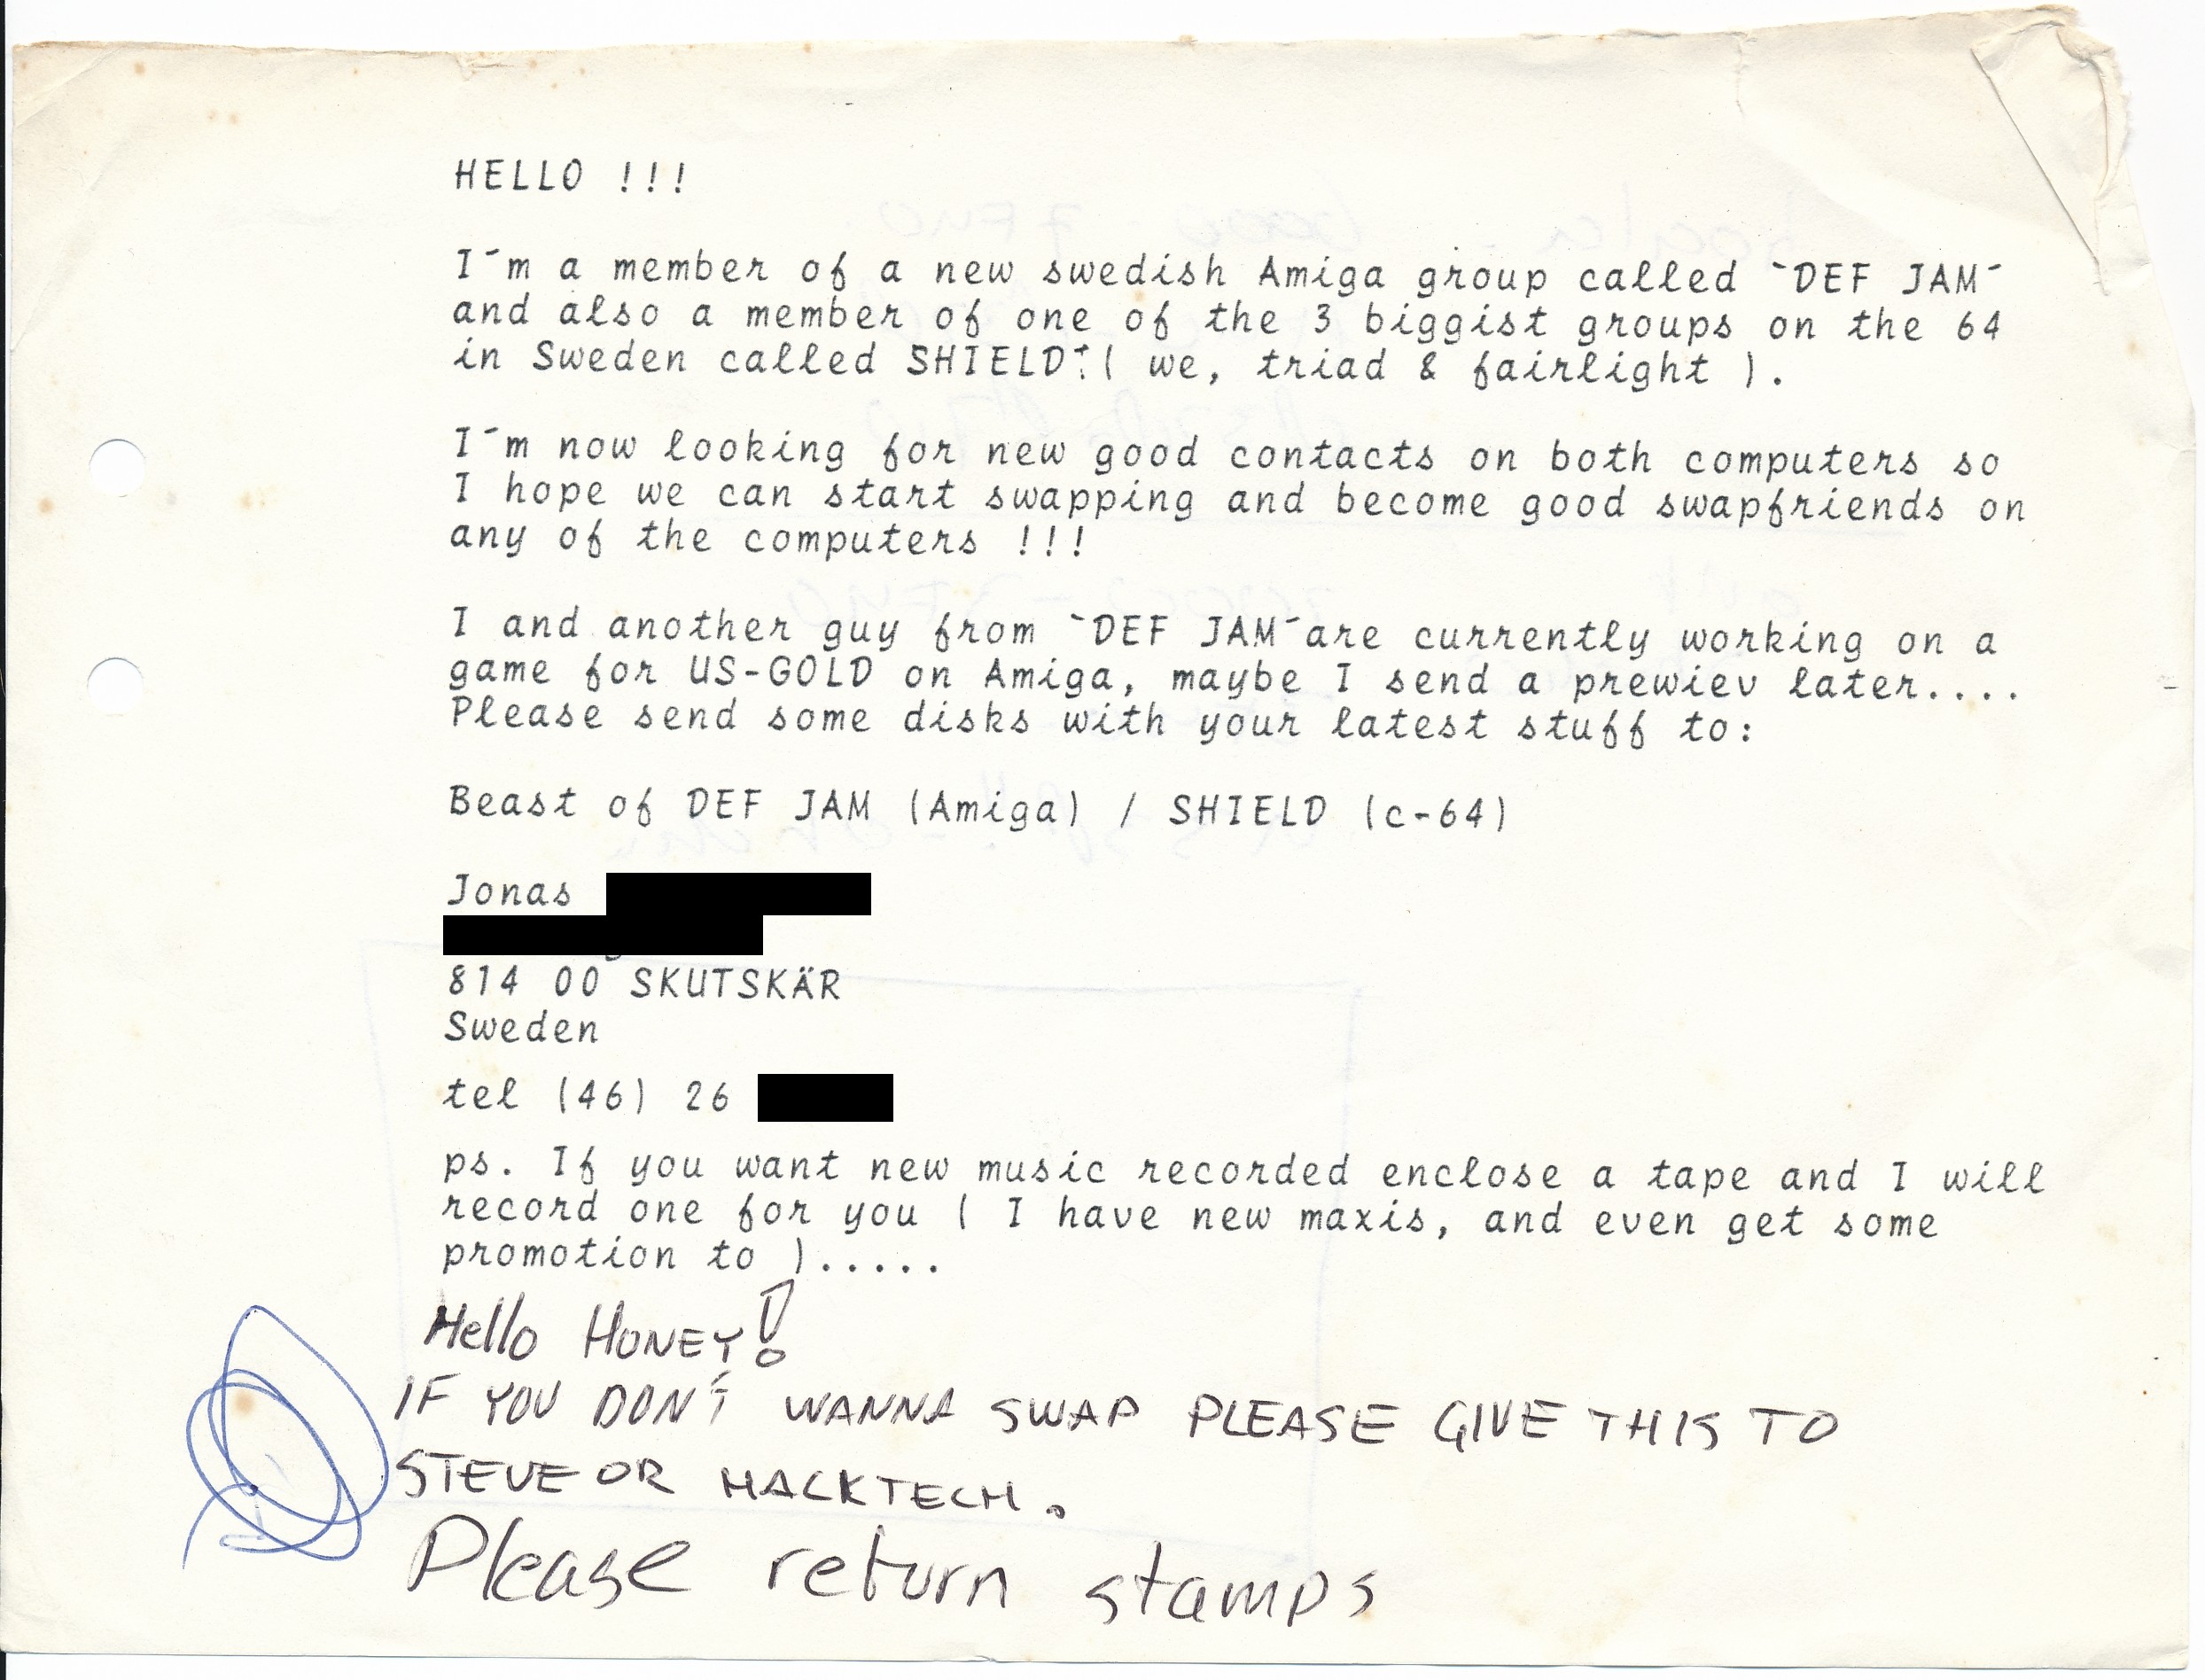 HELLO !!!
I´m a member of a new swedish Amiga group called `DEF JAM´
and also a member of one of the 3 biggist groups on the 64
in Sweden called SHIELD!( we, triad & fairlight ).
I´m now looking for new good contacts on both computers so
I hope we can start swapping and become good swapfriends on
any of the computers !!!
I and another guy from `DEF JAM´are currently working on a
game for US-GOLD on Amiga, maybe I send a prewiev later....
Please send some disks with your latest stuff to:
Beast of DEF JAM (Amiga) / SHIELD (c-64)
Jonas
814 00 SKUTSKÄR
Sweden
tel (46) 26
ps. If you want new music recorded enclose a tape and I will
record one for you ( I have new maxis, and even get some
promotion to ).....
Hello HONEY!
IF YOU DON'T WANNA SWAP PLEASE GIVE THIS TO
STEVE OR HACKTECH.
Please return stamps